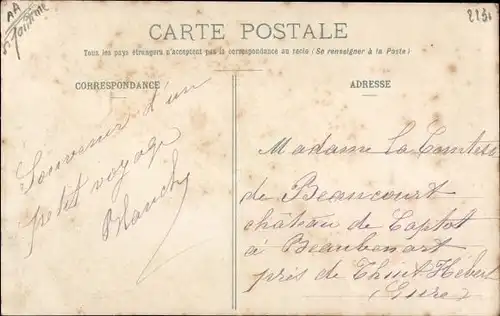 AA
2131
CARTE POSTALE
Tous les pays étrangers n'acceptent pas la correspondance au recto (Se renseigner à la Poste)
CORRESPONDANCE
ADRESSE
Souvenir d'un
petit voyage
Blanche
Madame la Comtesse
de Beancourt
château de Captot
à Beaubenart
près de Thuit-Hébert
(Eure)